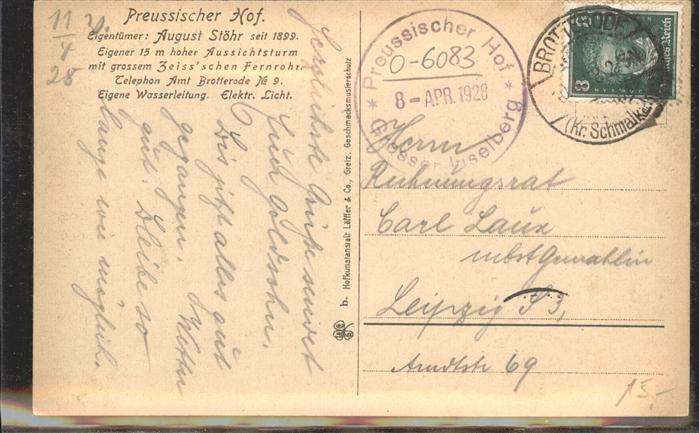 Preussischer Hof.
Eigentümer: August Stöhr seit 1899.
Eigener 15 m hoher Aussichtsturm
mit grossem Zeiss'schen Fernrohr.
Telephon Amt Brotterode № 9.
Eigene Wasserleitung. Elektr. Licht.
11/4 28
Herzlichste Grüße sendet
Euch Goldsohn.
Bis jetzt alles gut
gegangen. Wetter
gut. Bleibe so
lange wie möglich.
b. Hofkunstanstalt Löffler & Co., Greiz. Geschmacksmusterschutz
Preussischer Hof
O-6083
8-APR.1928
Grosser Inselberg
BROTTERODE
(Kr. Schmalkalden)
8
Deutsches Reich
Herrn
Rechnungsrat
Carl Laux
nebst Gemahlin
Leipzig S 3,
Arndtstr 69
15,-